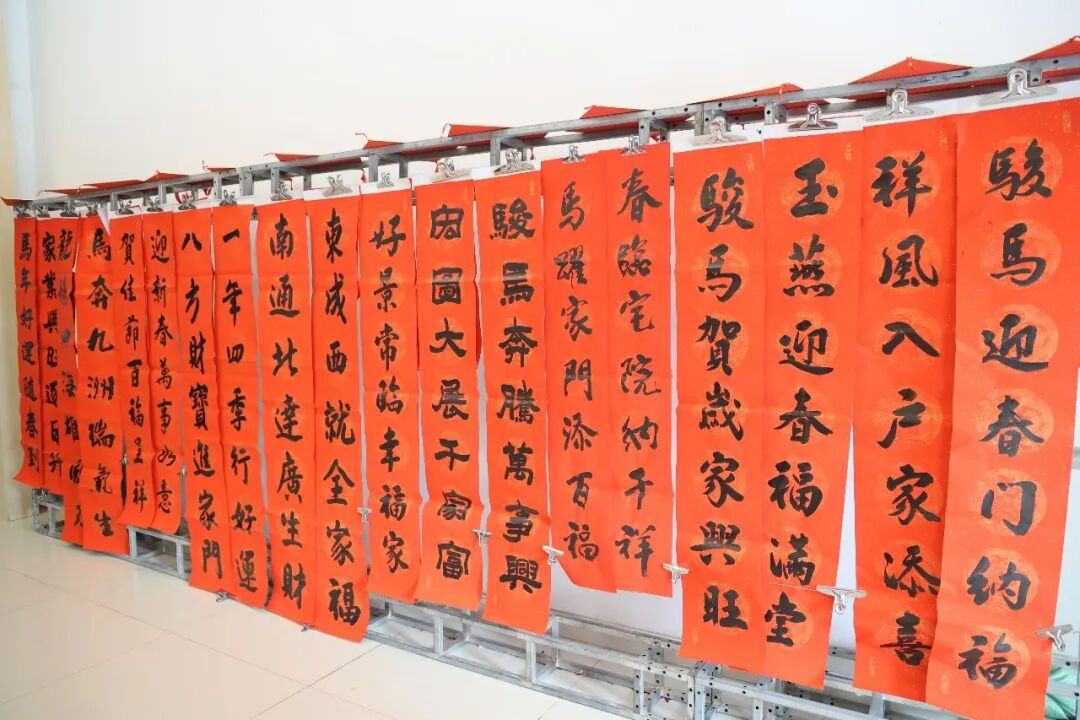 駿馬迎春门纳福
祥風入户家添喜
玉燕迎春福满堂
駿馬賀歲家興旺
春臨宅院纳千祥
馬躍家門添百福
駿馬奔騰萬事興
宏圖大展千家富
好景常临幸福家
東成西就全家福
南通北達廣生財
一年四季行好運
八方財寶進家門
迎新春萬事如意
賀佳節百福呈祥
馬奔九州瑞氣生
龍 海雄
家業興旺
馬年好運隨春到